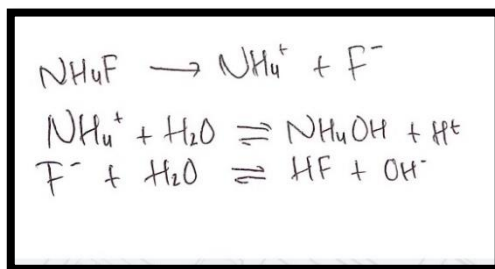 NH₄F → NH₄⁺ + F⁻
NH₄⁺ + H₂O ⇌ NH₄OH + H⁺
F⁻ + H₂O ⇌ HF + OH⁻